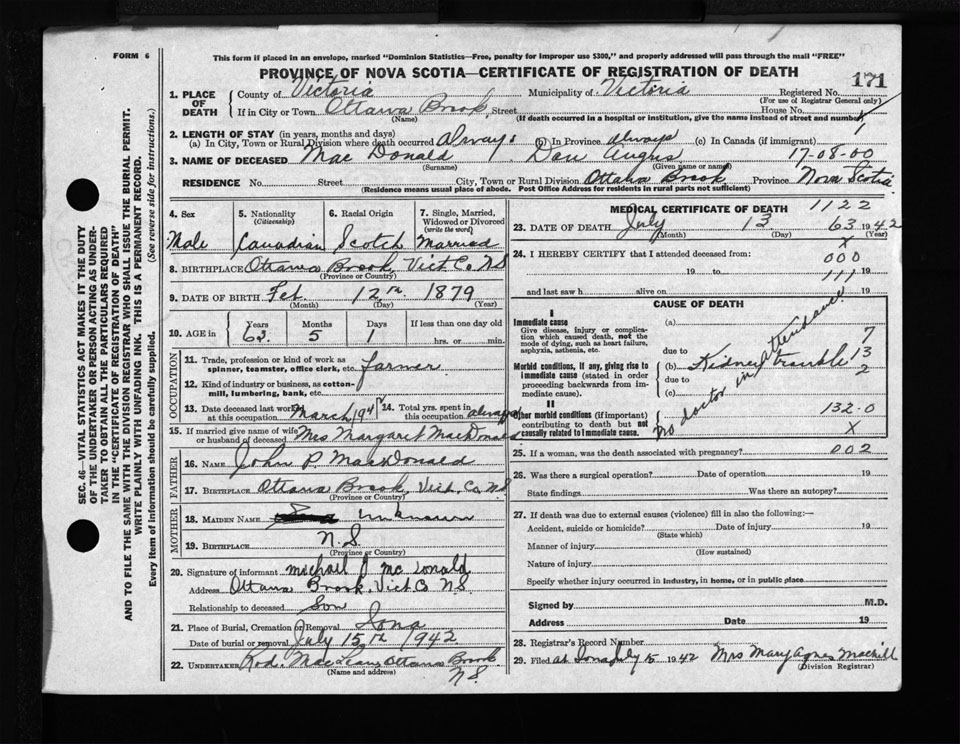 FORM 6
This form if placed in an envelope, marked "Dominion Statistics—Free, penalty for improper use $300," and properly addressed will pass through the mail "FREE"
PROVINCE OF NOVA SCOTIA—CERTIFICATE OF REGISTRATION OF DEATH
171
1. PLACE OF DEATH
County of Victoria Municipality of Victoria Registered No.
(For use of Registrar General only)
If in City or Town Ottawa Brook, Street House No.
(Name) (If death occurred in a hospital or institution, give the name instead of street and number)
1
2. LENGTH OF STAY (in years, months and days)
(a) In City, Town or Rural Division where death occurred always (b) In Province always (c) In Canada (if immigrant)
3. NAME OF DECEASED Mac Donald Dan Angus 17-08-00
(Surname) (Given name or names)
RESIDENCE No. Street City, Town or Rural Division Ottawa Brook Province Nova Scotia
(Residence means usual place of abode. Post Office Address for residents in rural parts not sufficient)
4. Sex 5. Nationality (Citizenship) 6. Racial Origin 7. Single, Married, Widowed or Divorced (write the word)
Male Canadian Scotch Married
8. BIRTHPLACE Ottawa Brook, Vict. Co. NS
(Province or Country)
9. DATE OF BIRTH Feb. 12th 1879
(Month) (Day) (Year)
10. AGE in Years Months Days If less than one day old
63 5 1 hrs. or min.
OCCUPATION
11. Trade, profession or kind of work as spinner, teamster, office clerk, etc. farmer
12. Kind of industry or business, as cotton-mill, lumbering, bank, etc.
13. Date deceased last worked at this occupation March 194 14. Total yrs. spent in this occupation always
15. If married give name of wife or husband of deceased Mrs Margaret MacDonald
FATHER
16. NAME John P. MacDonald
17. BIRTHPLACE Ottawa Brook, Vict. Co. NS
(Province or Country)
MOTHER
18. MAIDEN NAME unknown
19. BIRTHPLACE N.S.
(Province or Country)
20. Signature of informant Michael J. Mc Donald
Address Ottawa Brook, Vict Co NS.
Relationship to deceased Son
21. Place of Burial, Cremation or Removal Iona
Date of burial or removal July 15th 1942
22. UNDERTAKER Rod. MacLean Ottawa Brook
(Name and address) N.S.
MEDICAL CERTIFICATE OF DEATH 1122
23. DATE OF DEATH July 13 63 1942
(Month) (Day) X (Year)
24. I HEREBY CERTIFY that I attended deceased from: 000
19 to 19
111
and last saw h alive on 19
CAUSE OF DEATH
I
Immediate cause (a)
Give disease, injury or complication which caused death, not the mode of dying, such as heart failure, asphyxia, asthenia, etc.
due to 7
Morbid conditions, if any, giving rise to immediate cause (stated in order proceeding backwards from immediate cause).
(b) Kidney trouble 13
due to 2
(c)
no doctor in attendance
II
Other morbid conditions (if important) contributing to death but not causally related to immediate cause.
132.0
X
25. If a woman, was the death associated with pregnancy? 002
26. Was there a surgical operation? Date of operation 19
State findings Was there an autopsy?
27. If death was due to external causes (violence) fill in also the following:—
Accident, suicide or homicide? Date of injury 19
(State which)
Manner of injury
(How sustained)
Nature of injury
Specify whether injury occurred in industry, in home, or in public place
Signed by M.D.
Address Date 19
28. Registrar's Record Number
29. Filed at Iona July 15 1942 Mrs Mary Agnes MacNeill
(Division Registrar)
SEC. 46—VITAL STATISTICS ACT MAKES IT THE DUTY
OF THE UNDERTAKER OR PERSON ACTING AS UNDER-
TAKER TO OBTAIN ALL THE PARTICULARS REQUIRED
IN THE "CERTIFICATE OF REGISTRATION OF DEATH"
AND TO FILE THE SAME WITH THE DIVISION REGISTRAR WHO SHALL ISSUE THE BURIAL PERMIT.
WRITE PLAINLY WITH UNFADING INK. THIS IS A PERMANENT RECORD.
Every item of information should be carefully supplied. (See reverse side for instructions.)